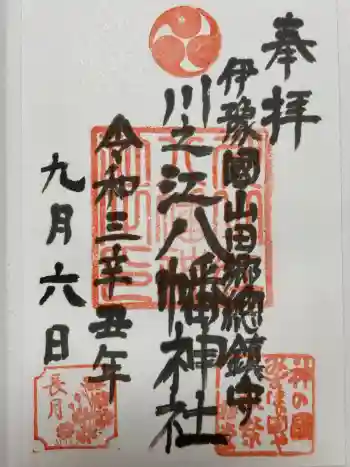 奉拝
伊豫國山田郷總鎮守
川之江八幡神社
令和三辛丑年
九月六日
長月
神の國